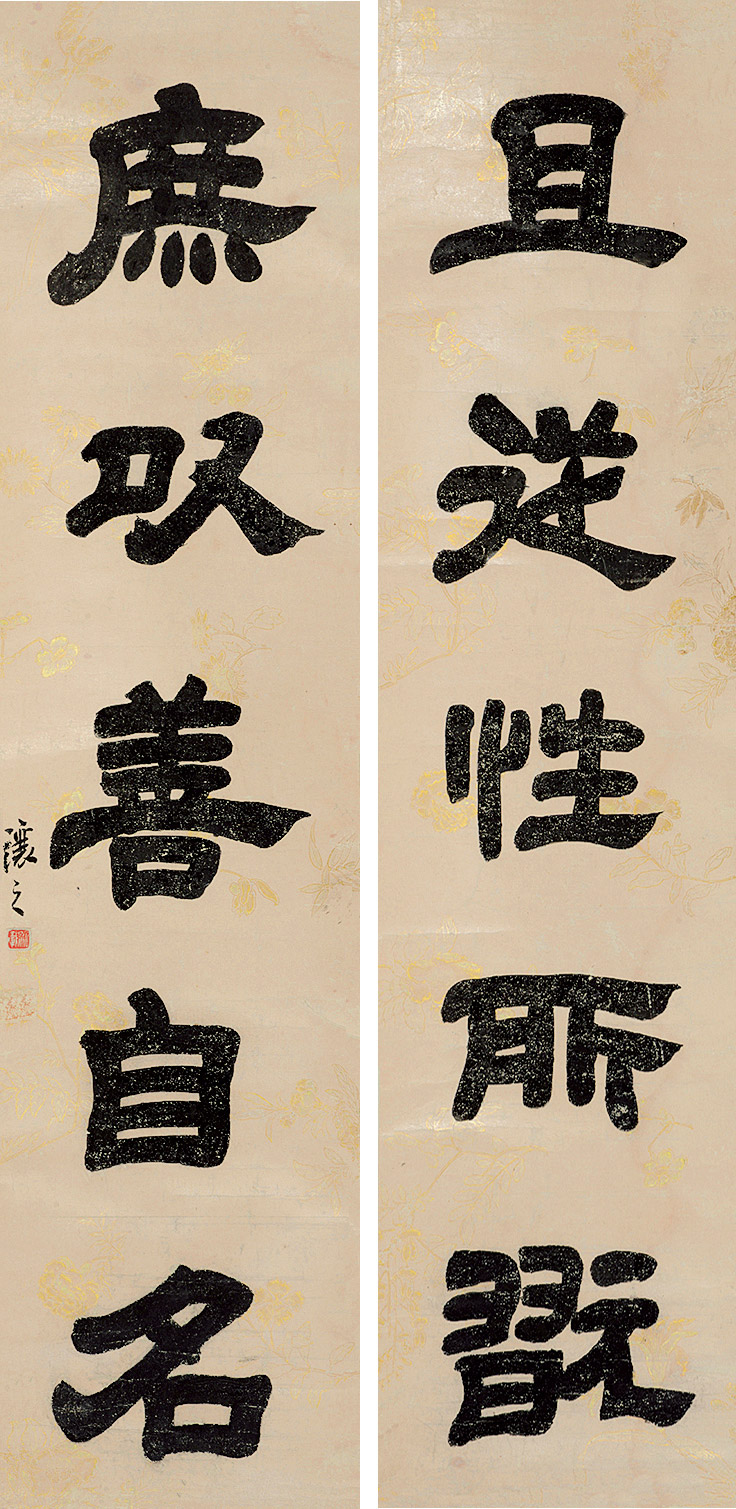 且從性所翫
庶以善自名
讓之